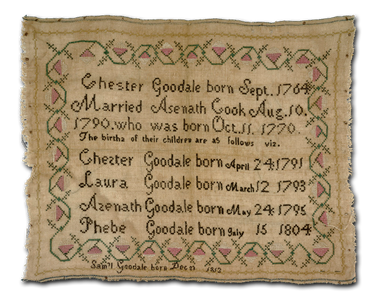 Chester Goodale born Sept. 1764
Married Asenath Cook Aug. 10.
1790. who was born Oct. 11. 1770.
The births of their children are as follows viz.
Chezter Goodale born April 24: 1791
Laura Goodale born March 12 1793
Azenath Goodale born May 24: 1795
Phebe Goodale born July 15 1804
Sam'l Goodale born Dec 11 1812